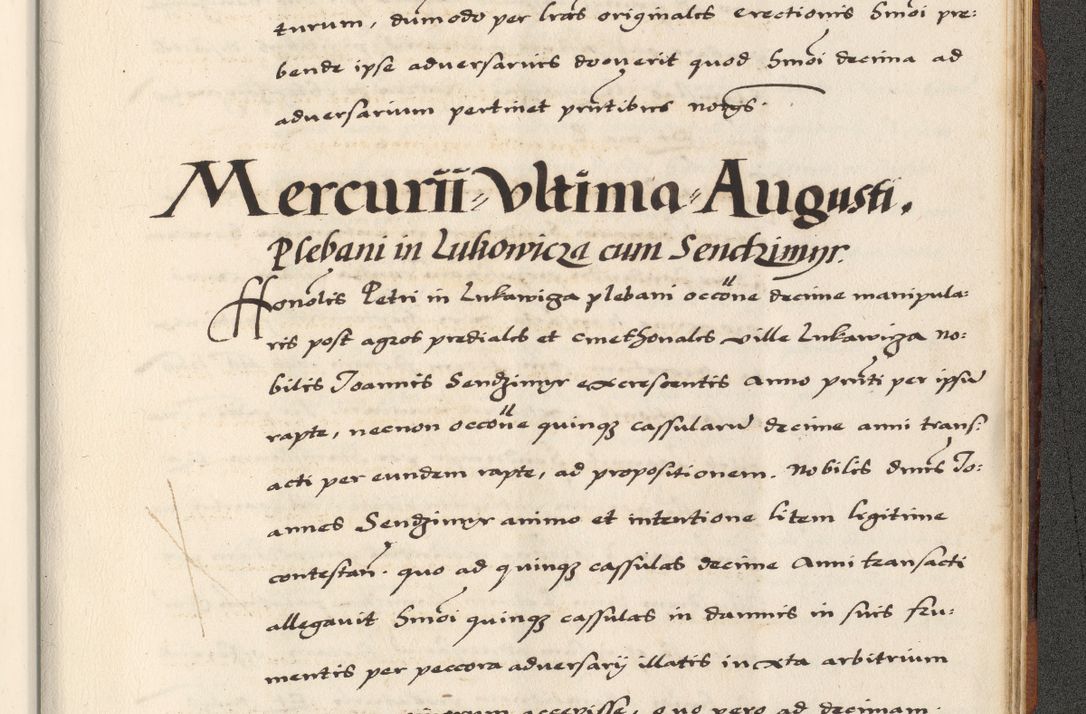 turum, dummodo per lras originales erectionis Smoi pre:
bende ipse adversarius docuerit quod Smoi decima ad
adversarium pertinet pntibus nongs.
Mercurii Vltima Augusti.
Plebani in Lukowicza cum Sendzimyr.
Honolis Petri in Lukawicza plebani occone decime manipula:
ris post agros prediales et cmethonales ville Lukawicza No:
bilis Joannis Sendzimyr excrescentis Anno pnti per ipsu
rapte, necnon occone quinq cassularu decime anni trans
acti per eundem rapte, ad propositionem. Nobilis dnus Jo:
annes Sendzimyr animo et intentione litem legitime
contestan. quo ad quinq cassulas decime Anni transacti
allegavit Smoi quinq cassulas in damnis in suis fru:
mentis per peccora adversarij illatis iuxta arbitrium
accepisse, quo vero ad decimam